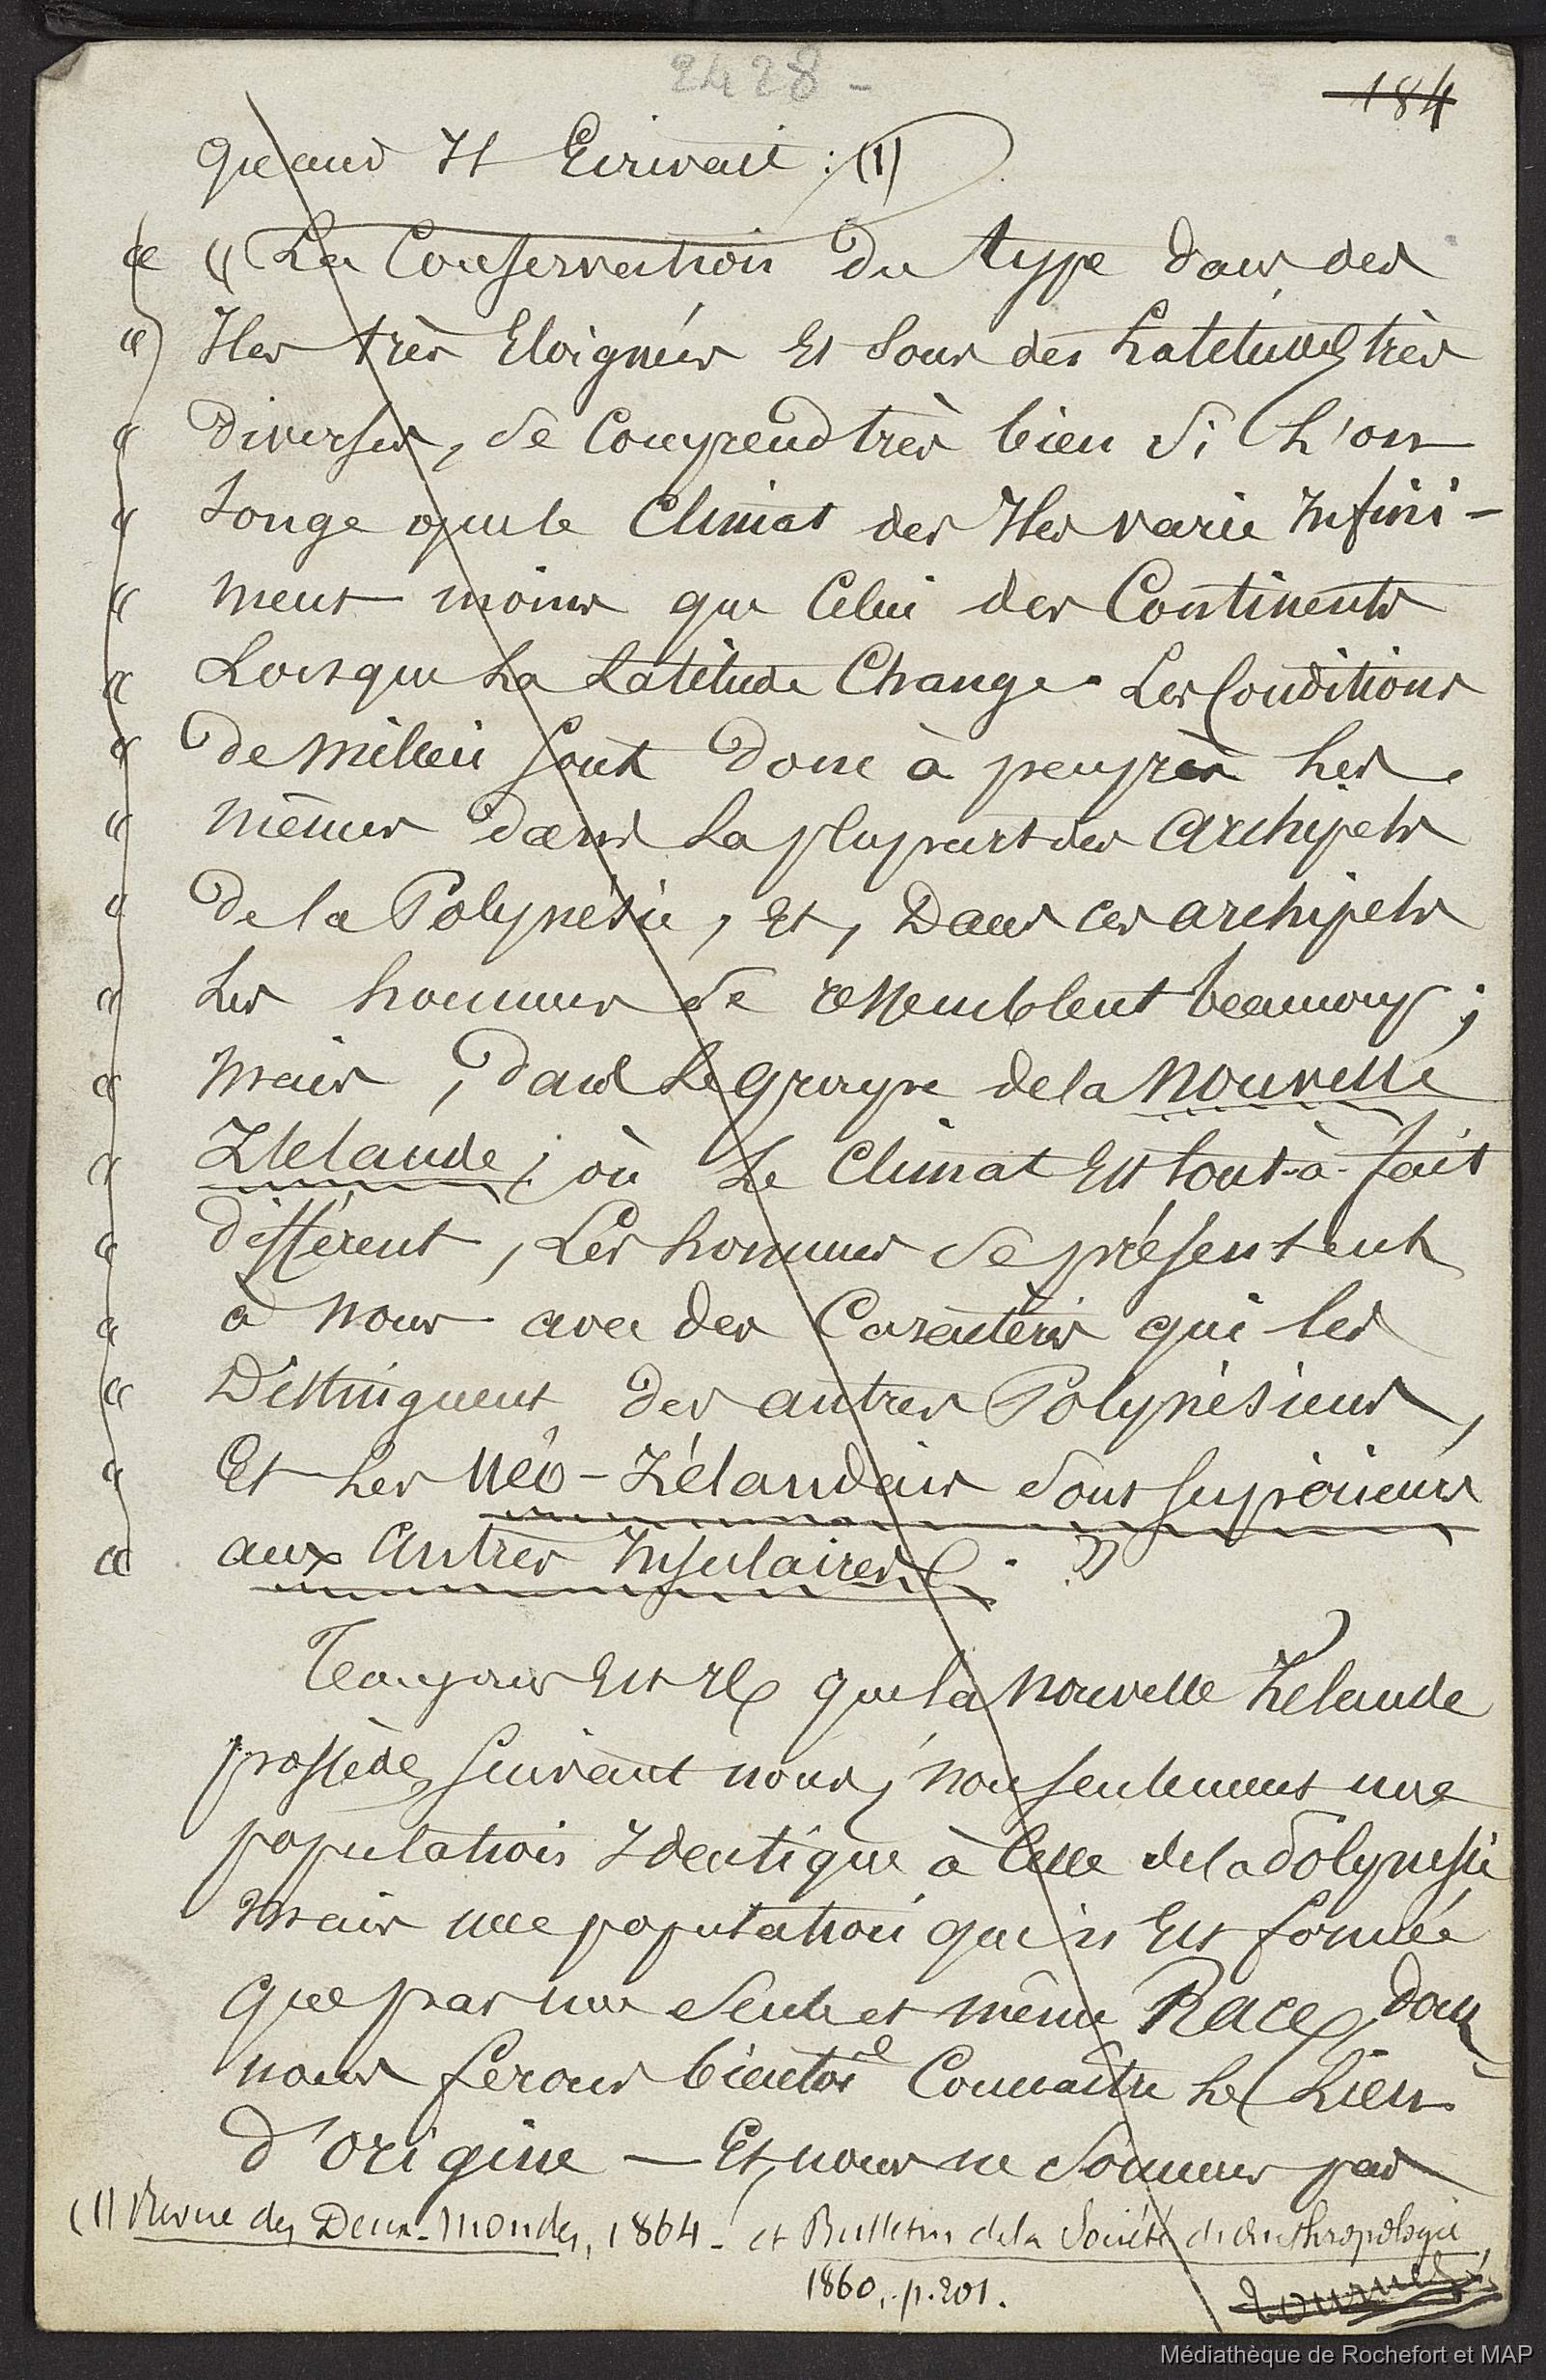 2428 -
184
quand Il Ecrivait : (1)
« « La Conservation du type dans des
« Iles très Eloignées Et sous des Latitudes très
« diverses, se Comprend très bien si L'on
« songe que le Climat des Iles varie Infini-
« ment moins que Celui des Continents
« Lorsque La Latitude Change. Les Conditions
« de milieu sont donc à peu près Les
« mêmes dans La plupart des Archipels
« de la Polynésie, Et, Dans ces archipels
« Les hommes se ressemblent beaucoup ;
« mais, dans Le groupe de la Nouvelle
« Zélande, où Le Climat Est tout-à-fait
« différent, Les hommes se présentent
« à nous avec des Caractères qui les
« Distinguent des autres Polynésiens,
« Et Les Néo-Zélandais sont supérieurs
« aux Autres Insulaires. »
Toujours Est Il que la Nouvelle Zélande
possède, suivant nous, non seulement une
population Identique à Celle de la Polynésie
mais une population qui n'Est formée
que par une seule et même Race, dont
nous ferons bientôt Connaître Le Lieu
d'origine — Et, nous ne sommes pas
(1) Revue des Deux-Mondes, 1864 - et Bulletin de la Société d'anthropologie,
1860, p. 201.
tournez
Médiathèque de Rochefort et MAP